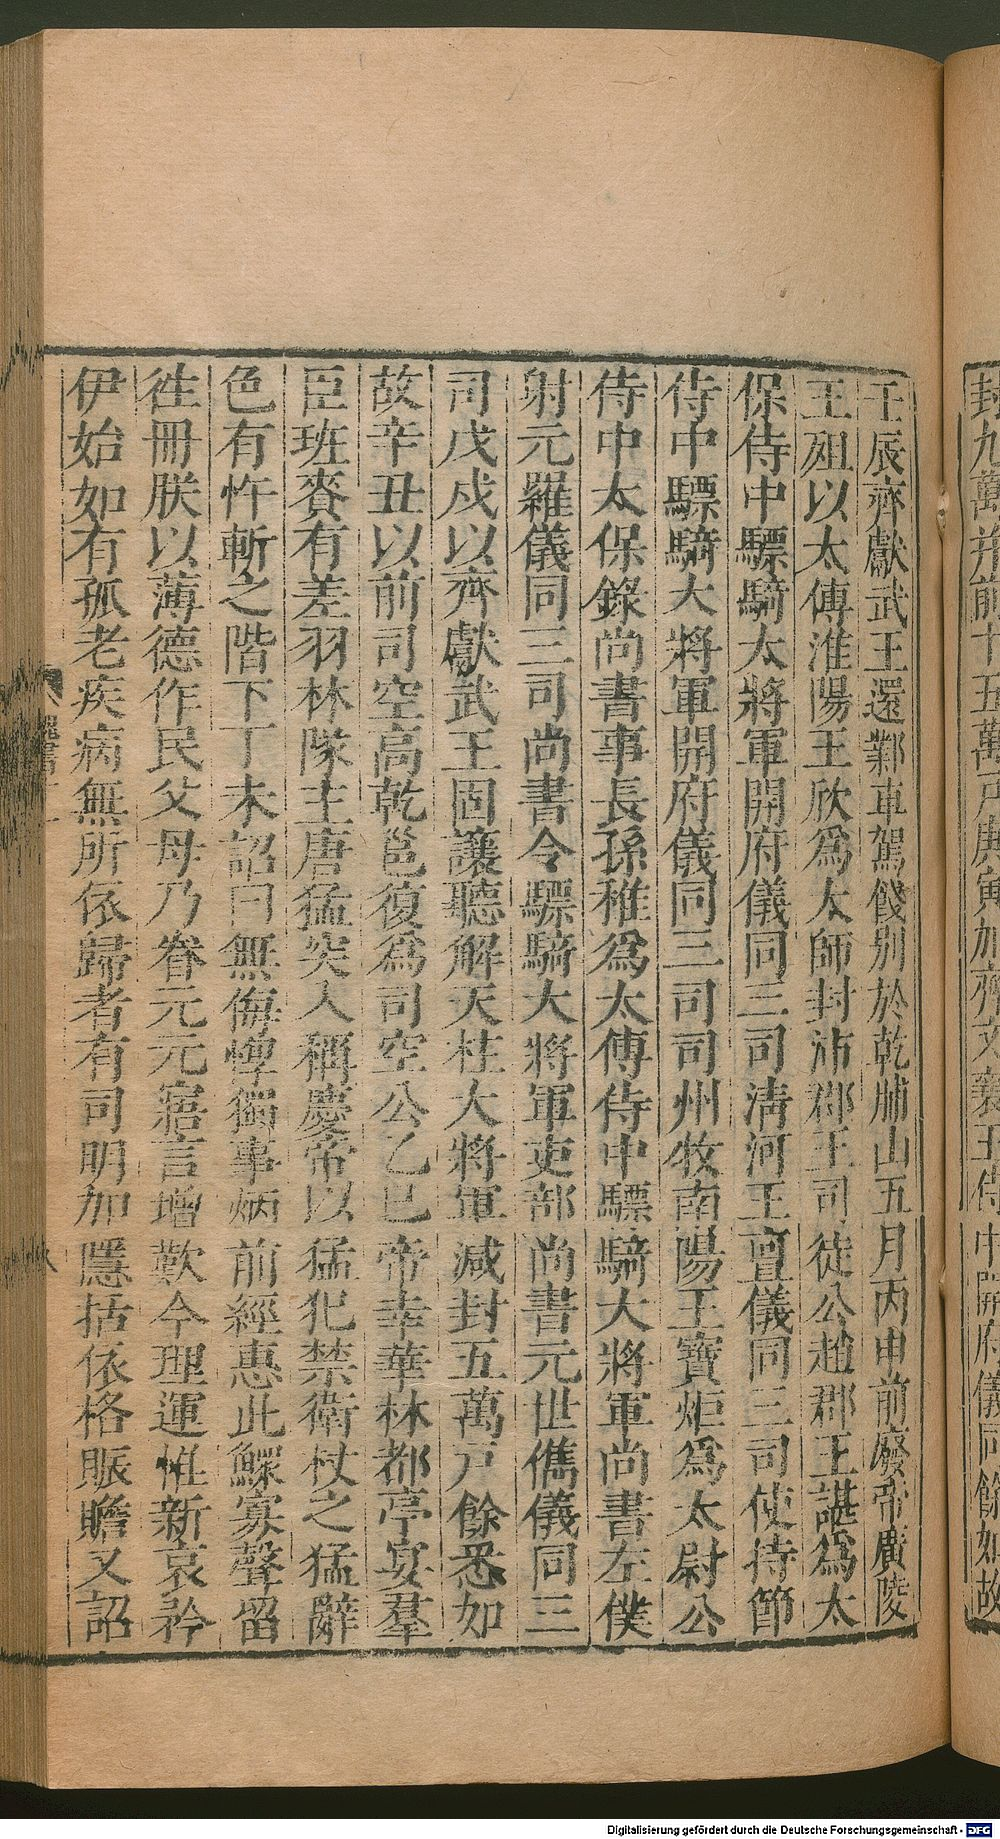 封九萬幷前十五萬戶庚寅加齊文襄王侍中開府儀同餘如故
壬辰齊獻武王還鄴車駕餞別於乾脯山五月丙申前廢帝廣陵
王殂以太傅淮陽王欣爲太師封沛郡王司徒公趙郡王諶爲太
保侍中驃騎大將軍開府儀同三司淸河王亶儀同三司使持節
侍中驃騎大將軍開府儀同三司司州牧南陽王寶炬爲太尉公
侍中太保錄尚書事長孫稚爲太傅侍中驃騎大將軍尚書左僕
射元羅儀同三司尚書令驃騎大將軍吏部尚書元世儁儀同三
司戊戌以齊獻武王固讓聽解天柱大將軍減封五萬戶餘悉如
故辛丑以前司空高乾邕復爲司空公乙巳帝幸華林都亭宴羣
臣班賚有差羽林隊主唐猛突入稱慶帝以猛犯禁衛杖之猛辭
色有忤斬之階下丁未詔曰無侮惸獨事炳前經惠此鰥寡聲留
徃冊朕以薄德作民父母乃眷元元寤言增歎今理運惟新哀矜
伊始如有孤老疾病無所依歸者有司明加隱括依格賑贍又詔
魏書十一
Digitalisierung gefördert durch die Deutsche Forschungsgemeinschaft - DFG